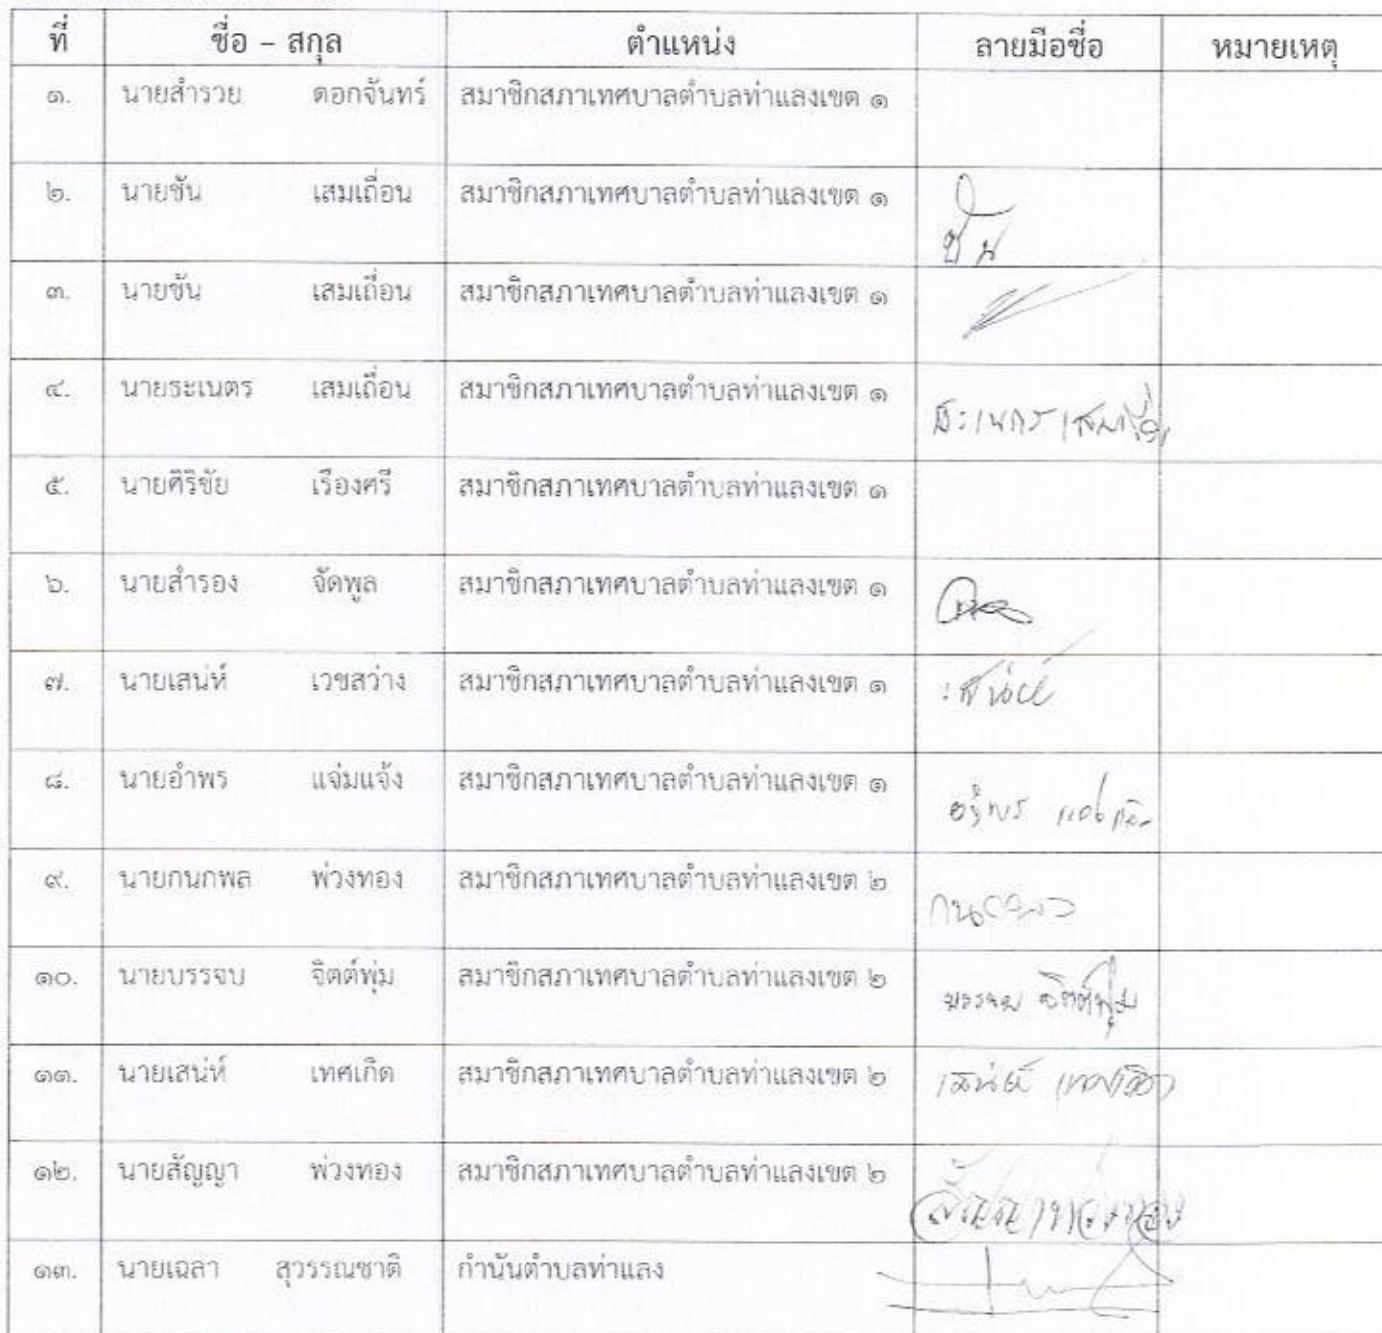 ที่ ชื่อ – สกุล ตำแหน่ง ลายมือชื่อ หมายเหตุ
๑. นายสำรวย ดอกจันทร์ สมาชิกสภาเทศบาลตำบลท่าแลงเขต ๑
๒. นายชั้น เสมเถื่อน สมาชิกสภาเทศบาลตำบลท่าแลงเขต ๑
ชั้น
๓. นายชั้น เสมเถื่อน สมาชิกสภาเทศบาลตำบลท่าแลงเขต ๑
๔. นายระเนตร เสมเถื่อน สมาชิกสภาเทศบาลตำบลท่าแลงเขต ๑
๕. นายศิริชัย เรืองศรี สมาชิกสภาเทศบาลตำบลท่าแลงเขต ๑
๖. นายสำรอง จัดพูล สมาชิกสภาเทศบาลตำบลท่าแลงเขต ๑
๗. นายเสน่ห์ เวชสว่าง สมาชิกสภาเทศบาลตำบลท่าแลงเขต ๑
เสน่ห์
๘. นายอำพร แจ่มแจ้ง สมาชิกสภาเทศบาลตำบลท่าแลงเขต ๑
อำพร แจ่มแจ้ง
๙. นายกนกพล พ่วงทอง สมาชิกสภาเทศบาลตำบลท่าแลงเขต ๒
กนกพล
๑๐. นายบรรจบ จิตต์พุ่ม สมาชิกสภาเทศบาลตำบลท่าแลงเขต ๒
บรรจบ จิตต์พุ่ม
๑๑. นายเสน่ห์ เทศเกิด สมาชิกสภาเทศบาลตำบลท่าแลงเขต ๒
เสน่ห์ เทศเกิด
๑๒. นายสัญญา พ่วงทอง สมาชิกสภาเทศบาลตำบลท่าแลงเขต ๒
สัญญา พ่วงทอง
๑๓. นายเฉลา สุวรรณชาติ กำนันตำบลท่าแลง